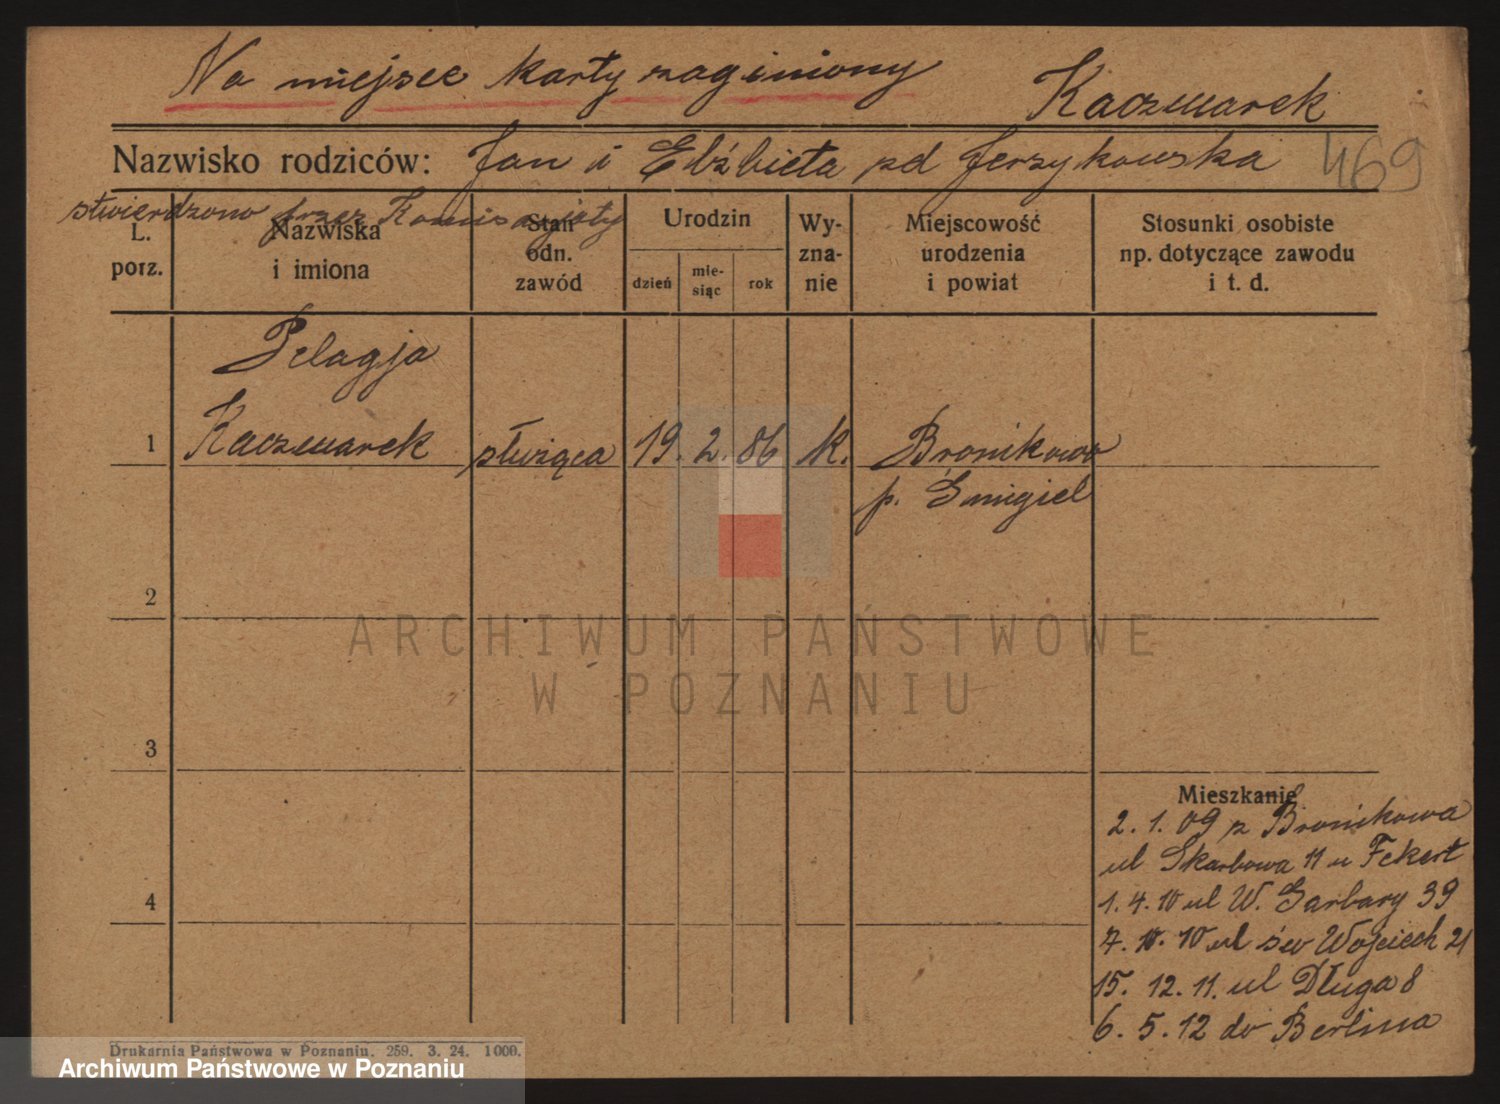 Na miejsce karty zaginiony
Kaczmarek
Nazwisko rodziców: Jan i Elżbieta zd Jerzykowska 469
stwierdzono przez Komisarjaty
L. porz.
Nazwiska i imiona
Stan odn. zawód
Urodzin
dzień
mie-siąc
rok
Wy-zna-nie
Miejscowość urodzenia i powiat
Stosunki osobiste np. dotyczące zawodu i t. d.
Pelagja
1 Kaczmarek służąca 19. 2. 86 K. Bronikowo
p. Śmigiel
2
3
4
Mieszkanie
2. 1. 09 z Bronikowa
ul Skarbowa 11 u Fekert
1. 4. 10 ul W. Garbary 39
7. 10. 10 ul św Wojciech 21
15. 12. 11. ul Długa 8
6. 5. 12 do Berlina
ARCHIWUM PAŃSTWOWE
W POZNANIU
Drukarnia Państwowa w Poznaniu. 259. 3. 24. 1000.
Archiwum Państwowe w Poznaniu